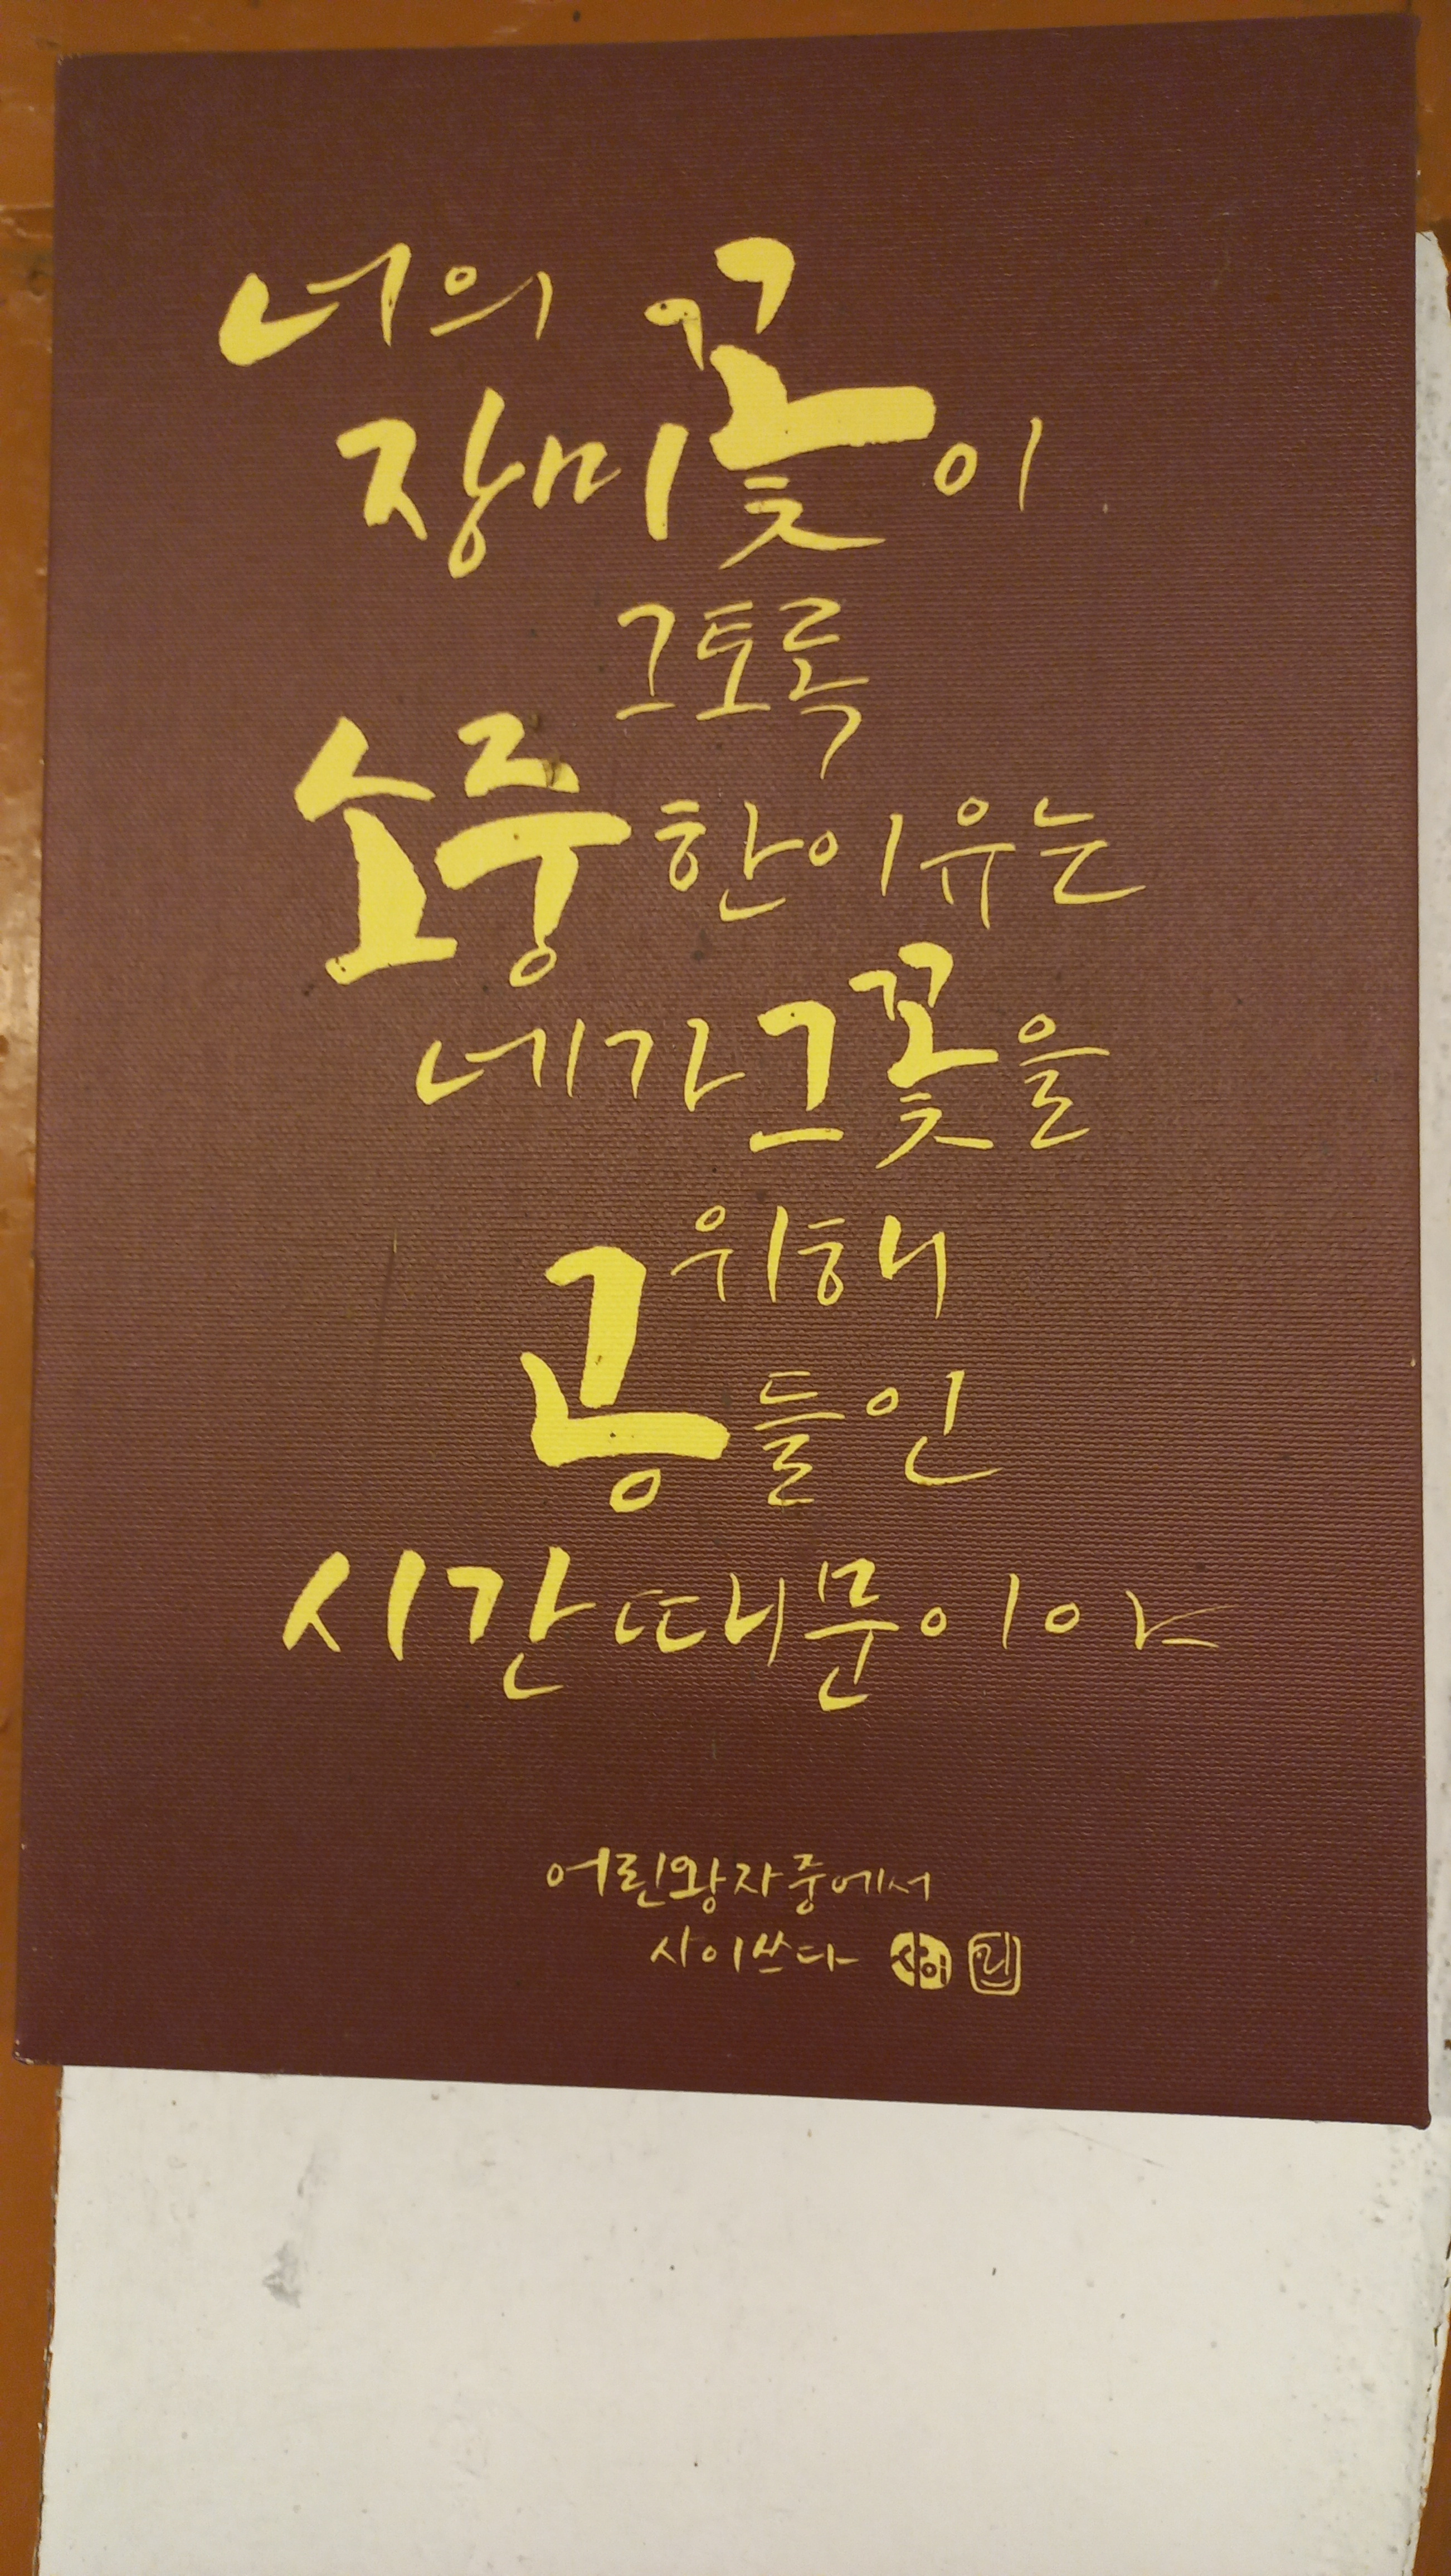 너의
장미꽃이
그토록
소중한이유는
네가그꽃을
위해
공들인
시간때문이야
어린왕자중에서
사이쓰다 사이